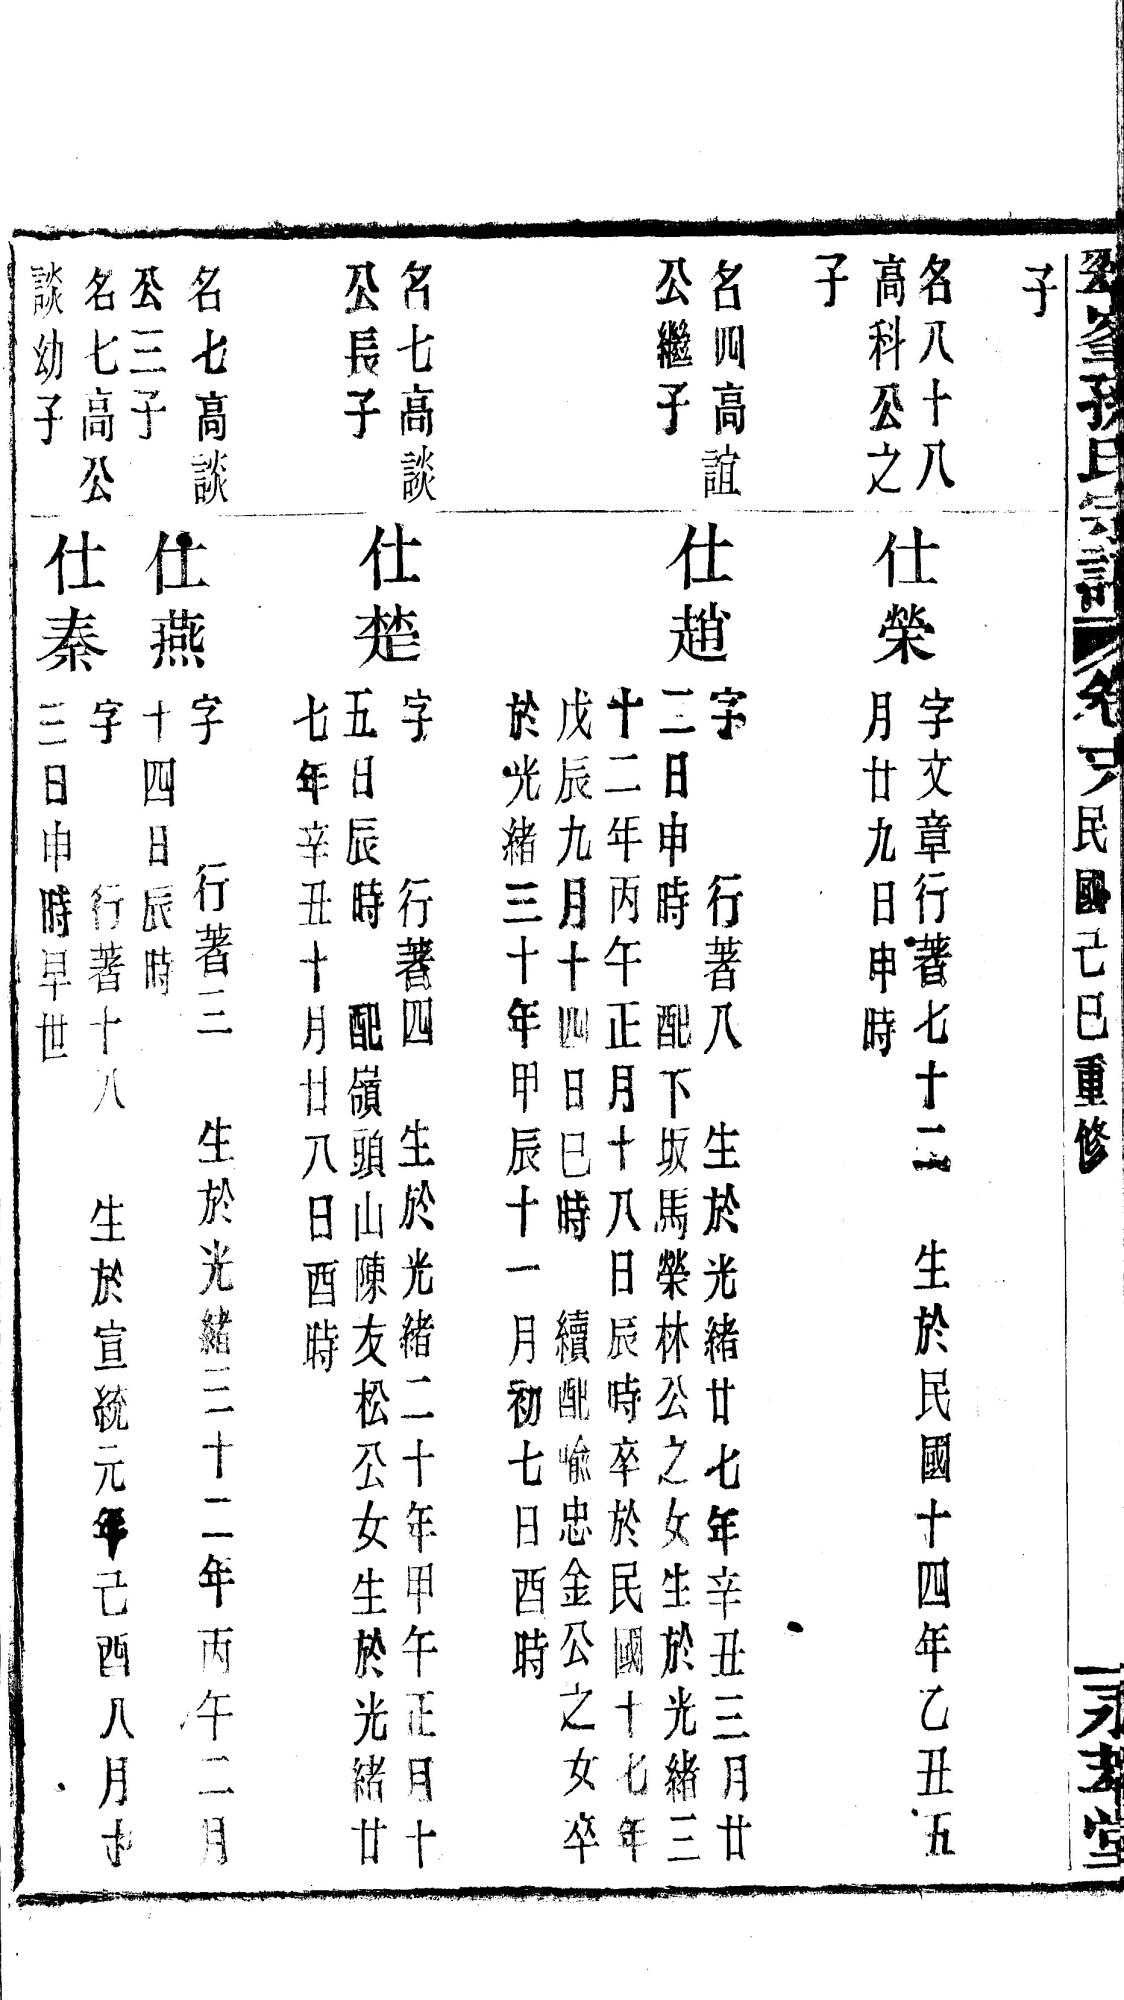 孫氏宗譜
卷
民國己巳重修
堂
子
名八十八
高科公之
子
仕榮
字文章行著七十二　生於民國十四年乙丑五
月廿九日申時
名四高誼
公繼子
仕趙
字　行著八　生於光緒廿七年辛丑三月廿
二日申時　配下坂馬榮林公之女生於光緒三
十二年丙午正月十八日辰時卒於民國十七年
戊辰九月十四日巳時　續配喻忠金公之女卒
於光緒三十年甲辰十一月初七日酉時
名七高談
公長子
仕楚
字　行著四　生於光緒二十年甲午正月十
五日辰時　配嶺頭山陳友松公女生於光緒廿
七年辛丑十月廿八日酉時
名七高談
公三子
仕燕
字　行著三　生於光緒三十二年丙午二月
十四日辰時
名七高公
談幼子
仕秦
字　行著十八　生於宣統元年己酉八月十
三日申時早世